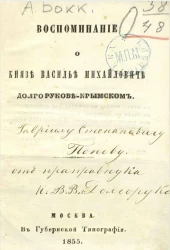 А. Бокк.
38
48
ВОСПОМИНАНІЕ
О
КНЯЗѢ ВАСИЛЬѢ МИХАЙЛОВИЧѢ
ДОЛГОРУКОВѢ-КРЫМСКОМЪ.
Гавріилу Степановичу
Попову.
отъ праправнука
К. В. В. Долгорук
МОСКВА.
Въ Губернской Типографіи.
1855.